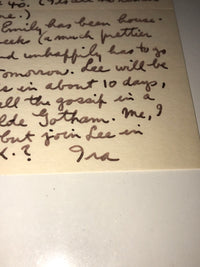 40. (
me.)
Emily has been house.
eeks (a much prettier
nd unhappily has to go
omorrow. Lee will be
s in about 10 days,
all the gossip in a
lde Gotham. Me, I
but join Lee in
? Ira